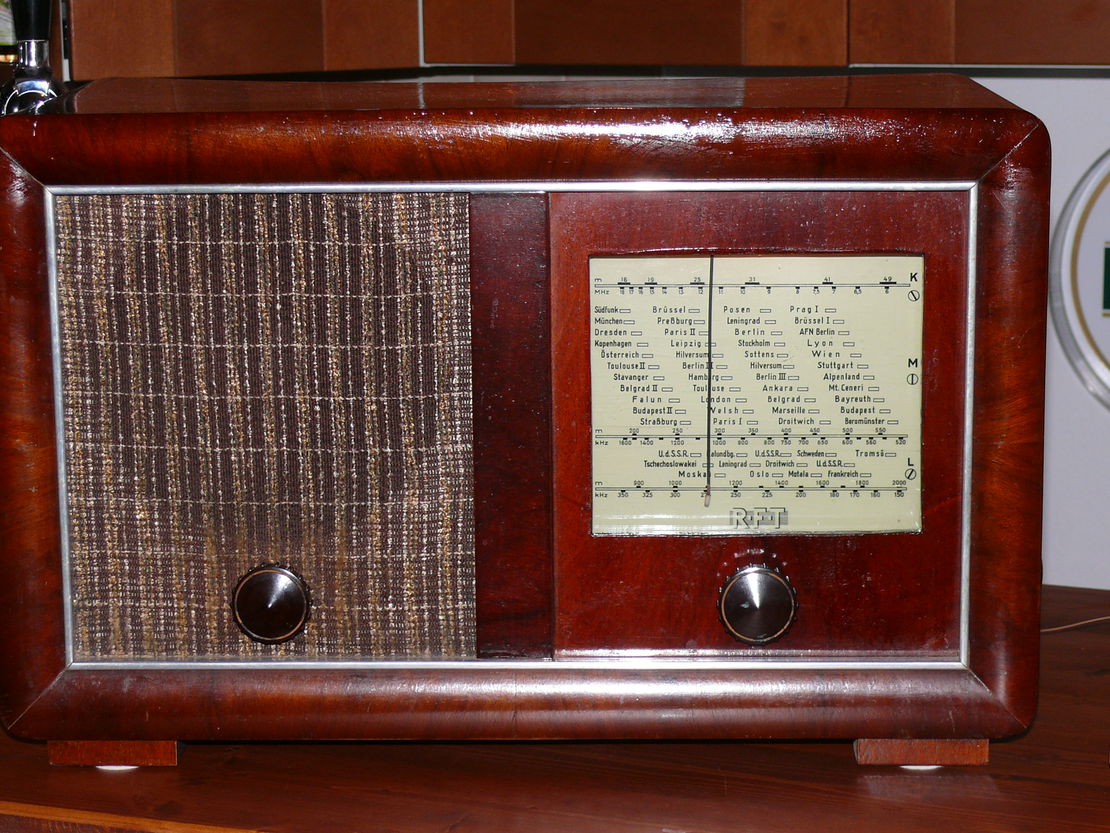 m 16 19 25 31 41 49 K
MHz 6
Südfunk Brüssel Posen Prag I
München Preßburg Leningrad Brüssel I
Dresden Paris II Berlin AFN Berlin
Kopenhagen Leipzig Stockholm Lyon
Österreich Hilversum Sottens Wien
Toulouse II Berlin II Hilversum Stuttgart M
Stavanger Hamburg Berlin III Alpenland
Belgrad II Toulouse Ankara Mt. Ceneri
Falun London Belgrad Bayreuth
Budapest II Welsh Marseille Budapest
Straßburg Paris I Droitwich Beromünster
m 200 250 300 350 400 450 500 550
kHz 1600 1400 1200 1000 900 800 700 650 600 560 520
U.d.S.S.R. Kalundbg. U.d.S.S.R. Schweden Tromsö
Tschechoslowakei Leningrad Droitwich U.d.S.S.R. L
Moskau Oslo Motala Frankreich
m 900 1000 1200 1400 1600 1800 2000
kHz 350 325 300 250 225 200 180 170 160 150
RFT